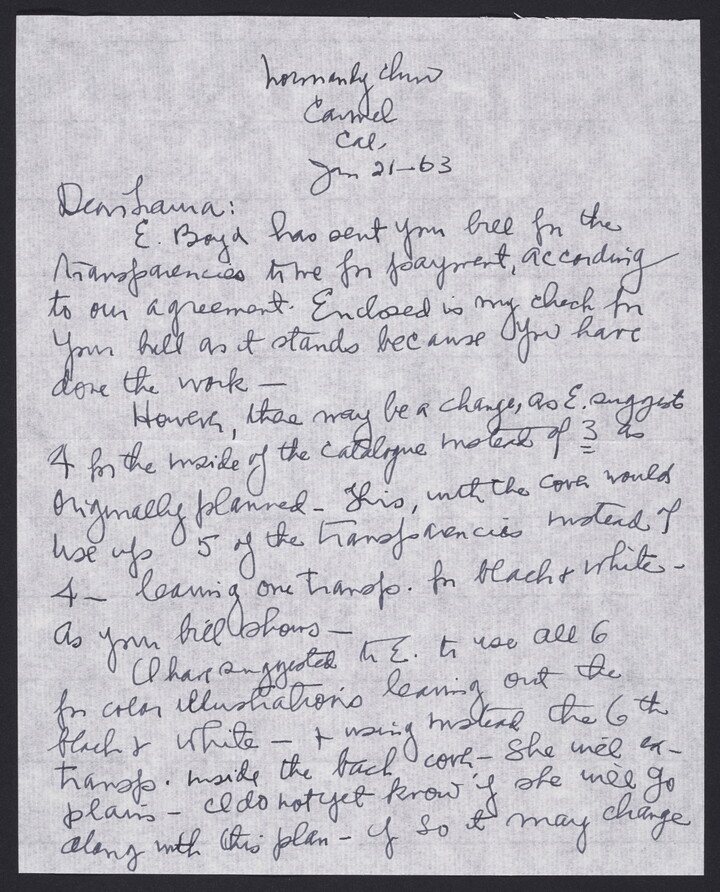 Normandy Inn
Carmel
Cal.
Jan 21-63
Dear Laura:
E. Boyd has sent your bill for the
transparencies to me for payment, according
to our agreement. Enclosed is my check for
your bill as it stands because you have
done the work —
However, there may be a change, as E. suggests
4 for the inside of the catalogue instead of 3 as
originally planned - This, with the cover would
use up 5 of the transparencies instead of
4 - leaving one transp. for black & white -
as your bill shows —
I have suggested to E. to use all 6
for color illustrations leaving out the
black & white - & using instead the 6th
transp. inside the back cover - She will ex-
plain - I do not yet know if she will go
along with this plan - if so it may change